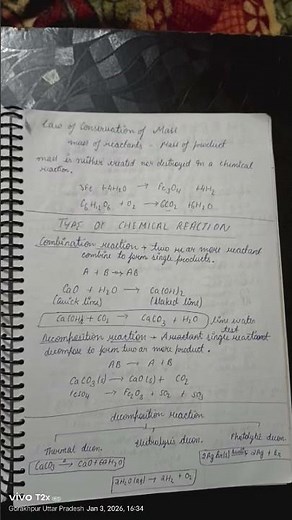 Law of Conservation of Mass
mass of reactants = Mass of product
mass is neither created nor destroyed in a chemical
reaction.
3Fe + 4H2O → Fe3O4 + 4H2
C6H12O6 + O2 → 6CO2 + 6H2O
TYPE OF CHEMICAL REACTION
Combination reaction → two or more reactant
combine to form single products.
A + B → AB
CaO + H2O → Ca(OH)2
(Quick lime) (Slaked lime)
Ca(OH)2 + CO2 → CaCO3 + H2O lime water
test
Decomposition reaction → A reactant single reactant
decompose to form two or more product.
AB → A + B
CaCO3(s) → CaO(s) + CO2
FeSO4 → Fe2O3 + SO2 + SO3
decomposition reaction
Thermal decom. Electrolysis decom. Photolytic decom.
CaCO3 → CaO +
2H2O(aq) → 2H2 + O2
vivo T2x
Gorakhpur Uttar Pradesh Jan 3, 2026, 16:34